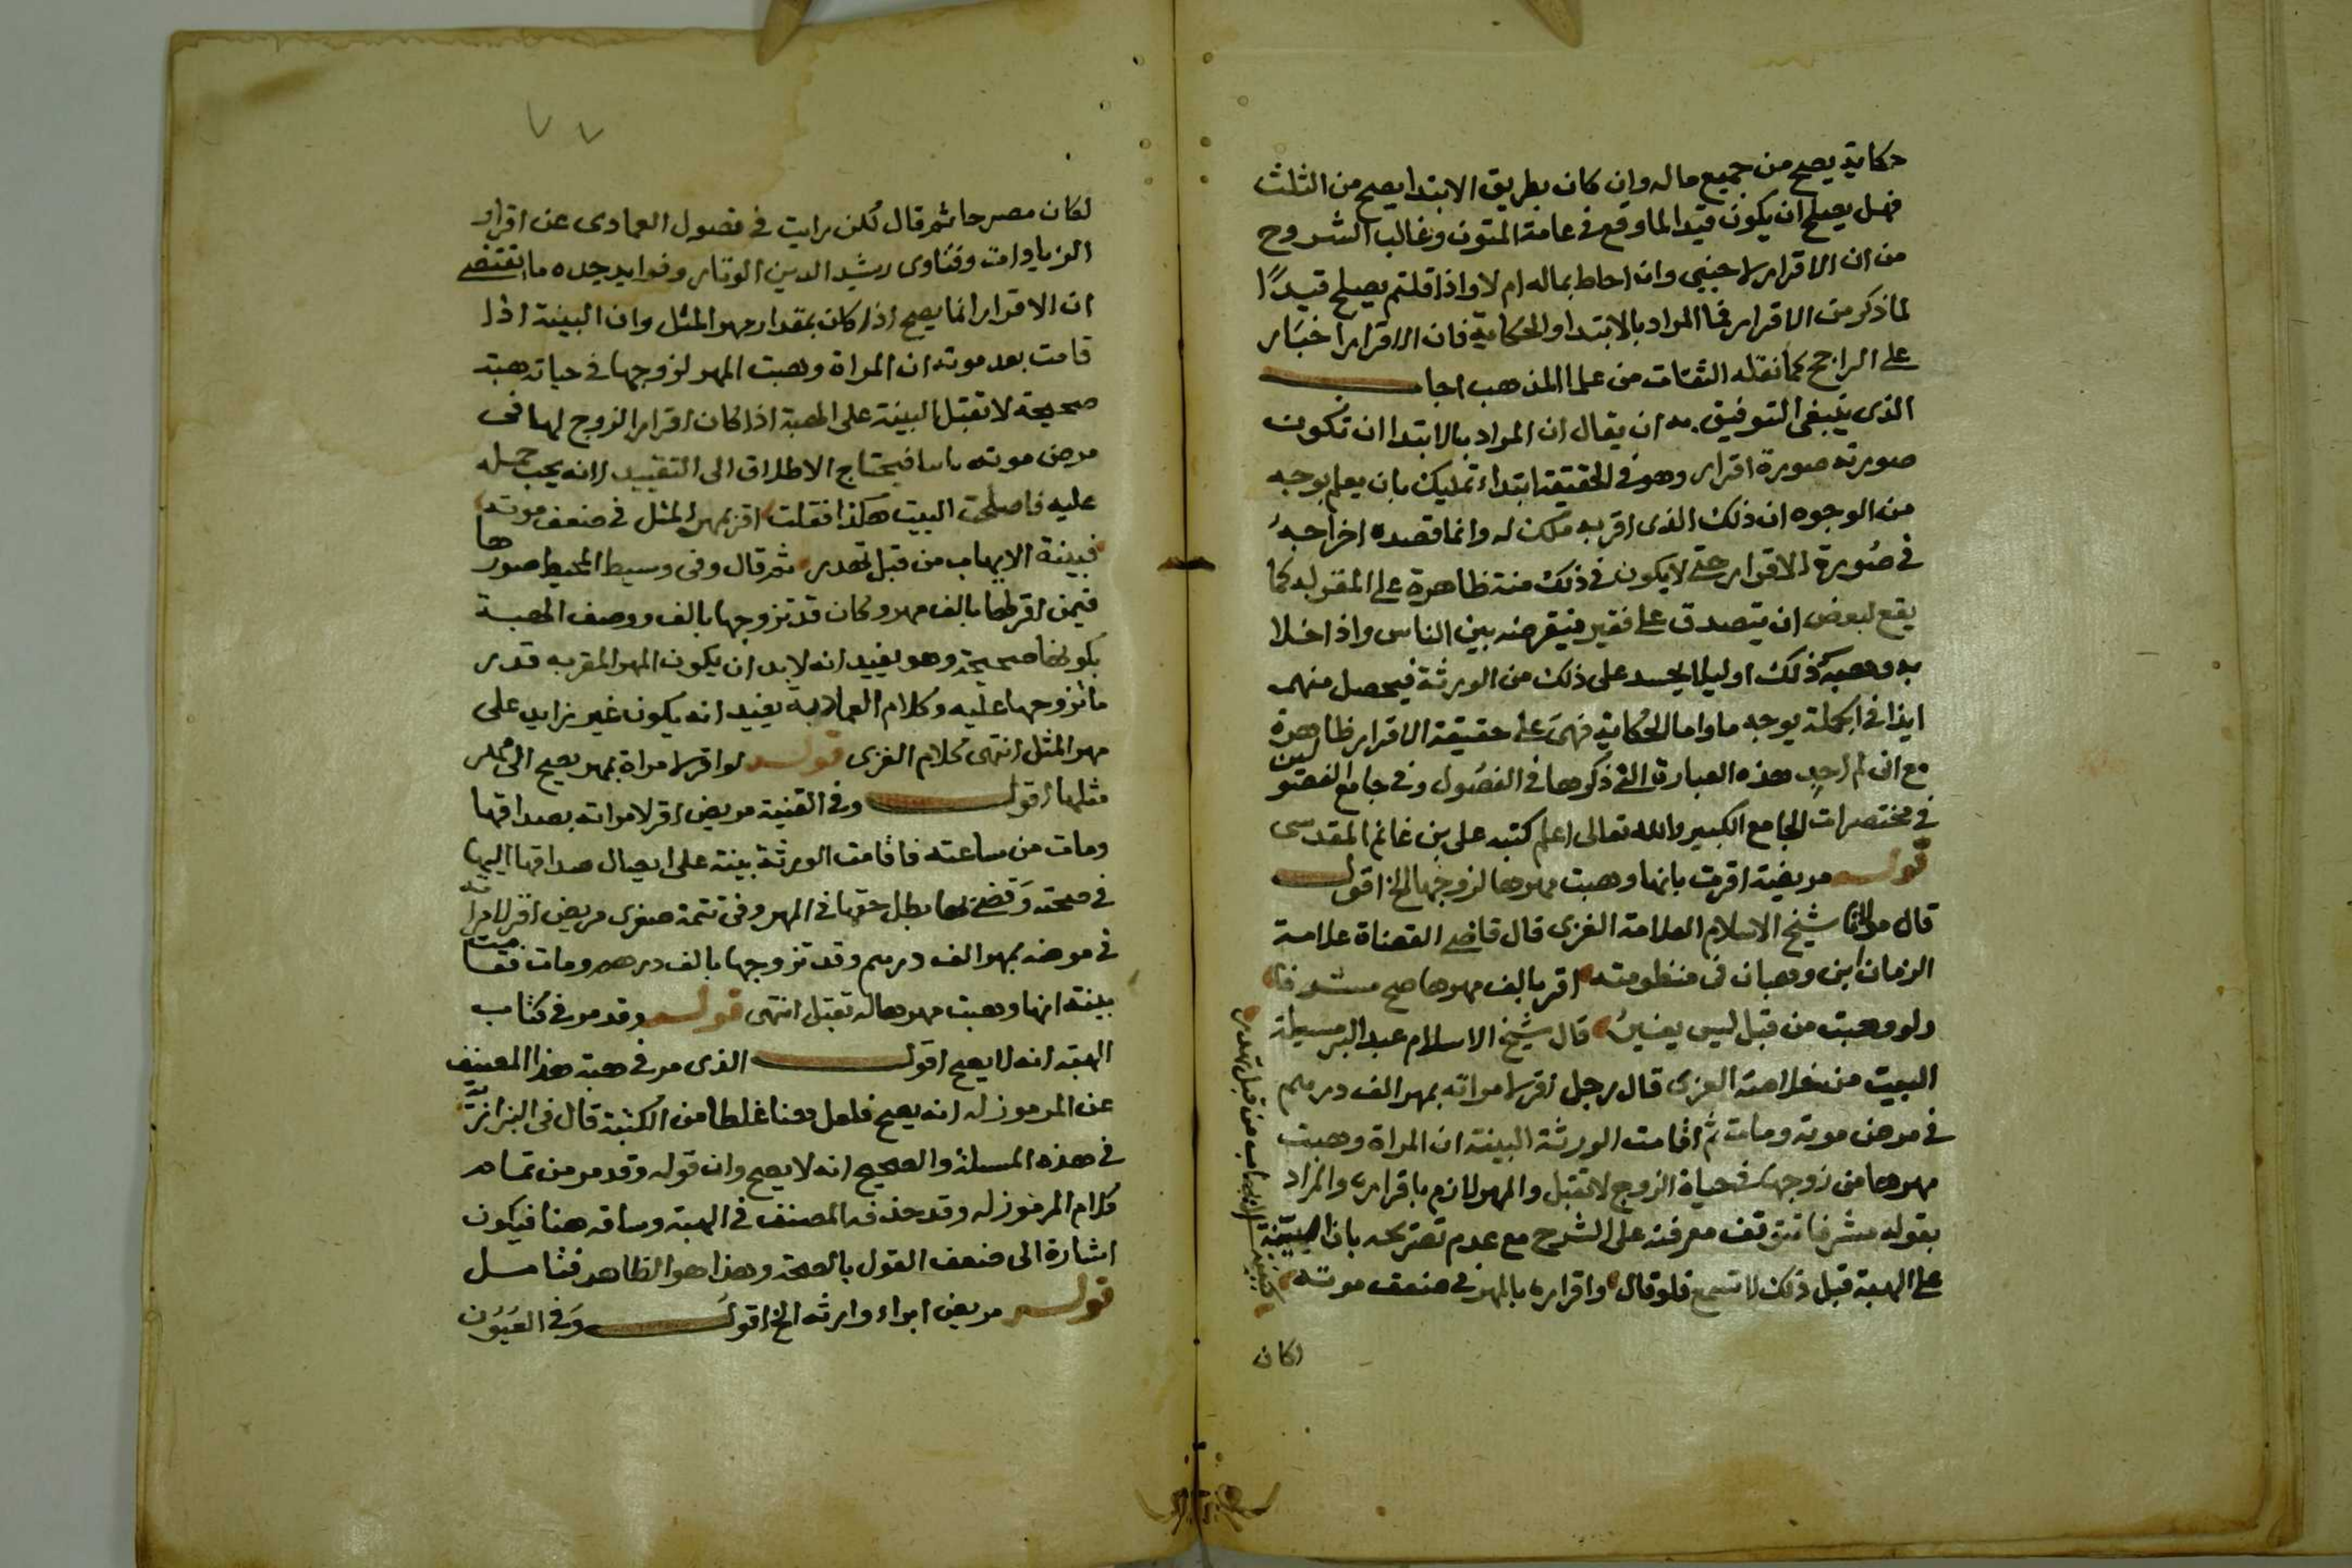 حكاية يصح من جميع ماله وان كان بطريق الابتدا يصح من الثلث
فهل يصلح ان يكون قيدا لما وقع في عامة المتون وغالب الشروح
من ان الاقرار لاجنبي وان احاط بماله ام لا واذا قلتم يصلح قيدًا
لما ذكر من الاقرار فما المراد بالابتدا والحكاية فان الاقرار اخبار
على الراجح كما نقله الثقات من علما المذهب اجاب
الذى ينبغى التوفيق به ان يقال ان المراد بالابتدا ان تكون
صورته صورة اقرار وهو في الحقيقة ابتداء تمليك بان يعلم بوجه
من الوجوه ان ذلك الذى اقر به ملك له وانما قصده اخراجه
في صورة الاقرار حتى لا يكون في ذلك منة ظاهرة على المقر له كما
يقع لبعض ان يتصدق على فقير فيقرضه بين الناس واذا خلا
به وهبه ذلك او ليلا يحسد على ذلك من الورثة فيحصل منهم
ايذا في الجملة بوجه ما واما الحكاية فهى على حقيقة الاقرار ظاهرة
مع انى لم اجد هذه العبارة التي ذكرها في الفصول وفي جامع الفصولين
في مختصرات الجامع الكبير والله تعالى اعلم كتبه على بن غانم المقدسى
قوله مريضة اقرت بانها وهبت مهرها لزوجها الخ اقول
قال مولانا شيخ الاسلام العلامة الغزى قال قاضي القضاة علامة
الزمان ابن وهبان في منظومته اقر بالف مهرها صح مشرفا
ولو وهبت من قبل ليس يغير قال شيخ الاسلام عبد البر مسيلة
البيت من خلاصة الغزى قال رجل اقر لامراته بمهر الف درهم
في مرض موته ومات ثم اقامت الورثة البينة ان المراة وهبت
مهرها من زوجها في حياة الزوج لا تقبل والمهر لازم باقراره والمراد
بقوله مشرفا تتوقف معرفته على الشرح مع عدم تصريحه بان البينة
على الهبة قبل ذلك لا تسمع فلو قال واقراره بالمهر في ضعف موته
فبينة الايهاب من قبل تهدر
لكان
٧٧
لكان مصرحا ثم قال لكن رايت في فصول العمادى عن اقرار
الزيادات وفتاوى رشيد الدين الوتار وفوايد جده ما يقتضى
ان الاقرار انما يصح اذا كان بمقدار مهر المثل وان البينة اذا
قامت بعد موته ان المراة وهبت المهر لزوجها في حياته هبة
صحيحة لا تقبل البينة على الهبة اذا كان اقرار الزوج لها في
مرض موته فيحتاج الاطلاق الى التقييد لانه يجب حمله
عليه فاصلحت البيت هكذا فقلت اقر بمهر المثل في ضعف موته
فبينة الايهاب من قبل تهدر ثم قال وفى وسيط المحيط صورها
فيمن اقر لها بالف مهر وكان قد تزوجها بالف ووصف الهبة
بكونها صحيحة وهو يفيد انه لا بد ان يكون المهر المقر به قدر
ما تزوجها عليه وكلام العمادية يفيد انه يكون غير زايد على
مهر المثل انتهى كلام الغزى قوله لو اقر لامراة بمهر يصح الى مهر
مثلها اقول وفي القنية مريض اقر لامراته بصداقها
ومات من ساعته فاقامت الورثة بينة على ايصال صداقها اليها
في صحته وقضى لها بطل حقها في المهر وفى تتمة صغرى مريض اقر لامراته
في مرضه بمهر الف درهم وقد تزوجها بالف درهم ومات فقامت
بينة انها وهبت مهرها له تقبل انتهى قوله وقد مر في كتاب
الهبة انه لا يصح اقول الذى مر في هبة هذا المصنف
عن المرموز له انه يصح فلعل هنا غلطا من الكتبة قال في البزازية
في هذه المسيلة والصحيح انه لا يصح وان قوله وقد مر من تمام
كلام المرموز له وقد حذفه المصنف في الهبة وساقه هنا فيكون
اشارة الى ضعف القول بالصحة وهذا هو الظاهر فتامل
قوله مريض ابراء وارثه الخ اقول وفي العيون